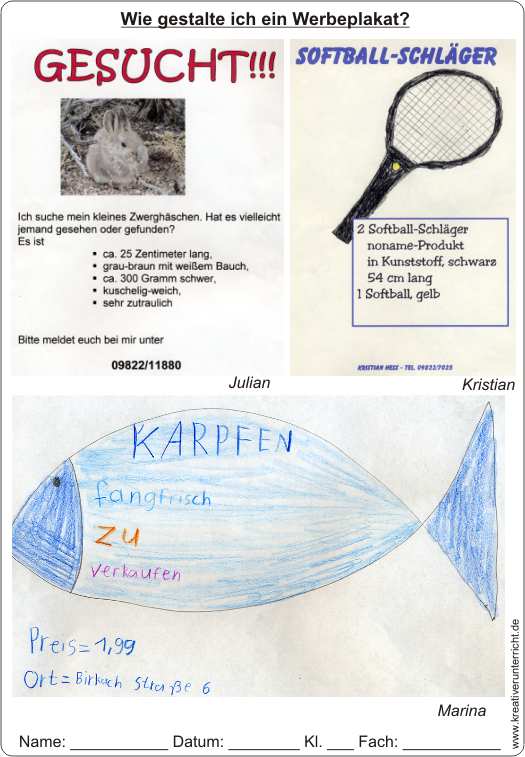 Wie gestalte ich ein Werbeplakat?
GESUCHT!!!
Ich suche mein kleines Zwerghäschen. Hat es vielleicht
jemand gesehen oder gefunden?
Es ist
▪ ca. 25 Zentimeter lang,
▪ grau-braun mit weißem Bauch,
▪ ca. 300 Gramm schwer,
▪ kuschelig-weich,
▪ sehr zutraulich
Bitte meldet euch bei mir unter
09822/11880
Julian
SOFTBALL-SCHLÄGER
2 Softball-Schläger
noname-Produkt
in Kunststoff, schwarz
54 cm lang
1 Softball, gelb
KRISTIAN HESS - TEL. 09822/7025
Kristian
KARPFEN
fangfrisch
zu
verkaufen
Preis=1,99
Ort=Birkach straße 6
Marina
www.kreativerunterricht.de
Name: ___________ Datum: ________ Kl. ___ Fach: ___________